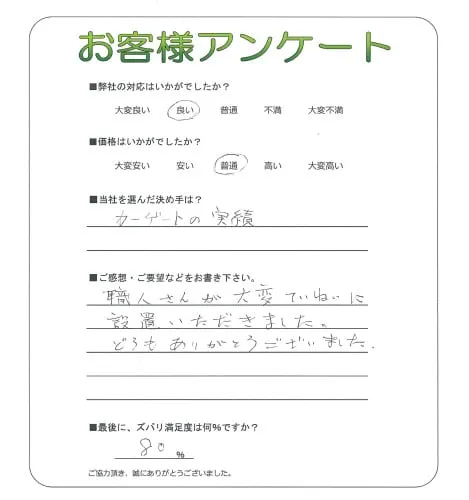 お客様アンケート
■弊社の対応はいかがでしたか？
大変良い 良い 普通 不満 大変不満
■価格はいかがでしたか？
大変安い 安い 普通 高い 大変高い
■当社を選んだ決め手は？
カーゲートの実績
■ご感想・ご要望などをお書き下さい。
職人さんが大変ていねいに
設置いただきました。
どうもありがとうございました.
■最後に、ズバリ満足度は何％ですか？
80 %
ご協力頂き、誠にありがとうございました。